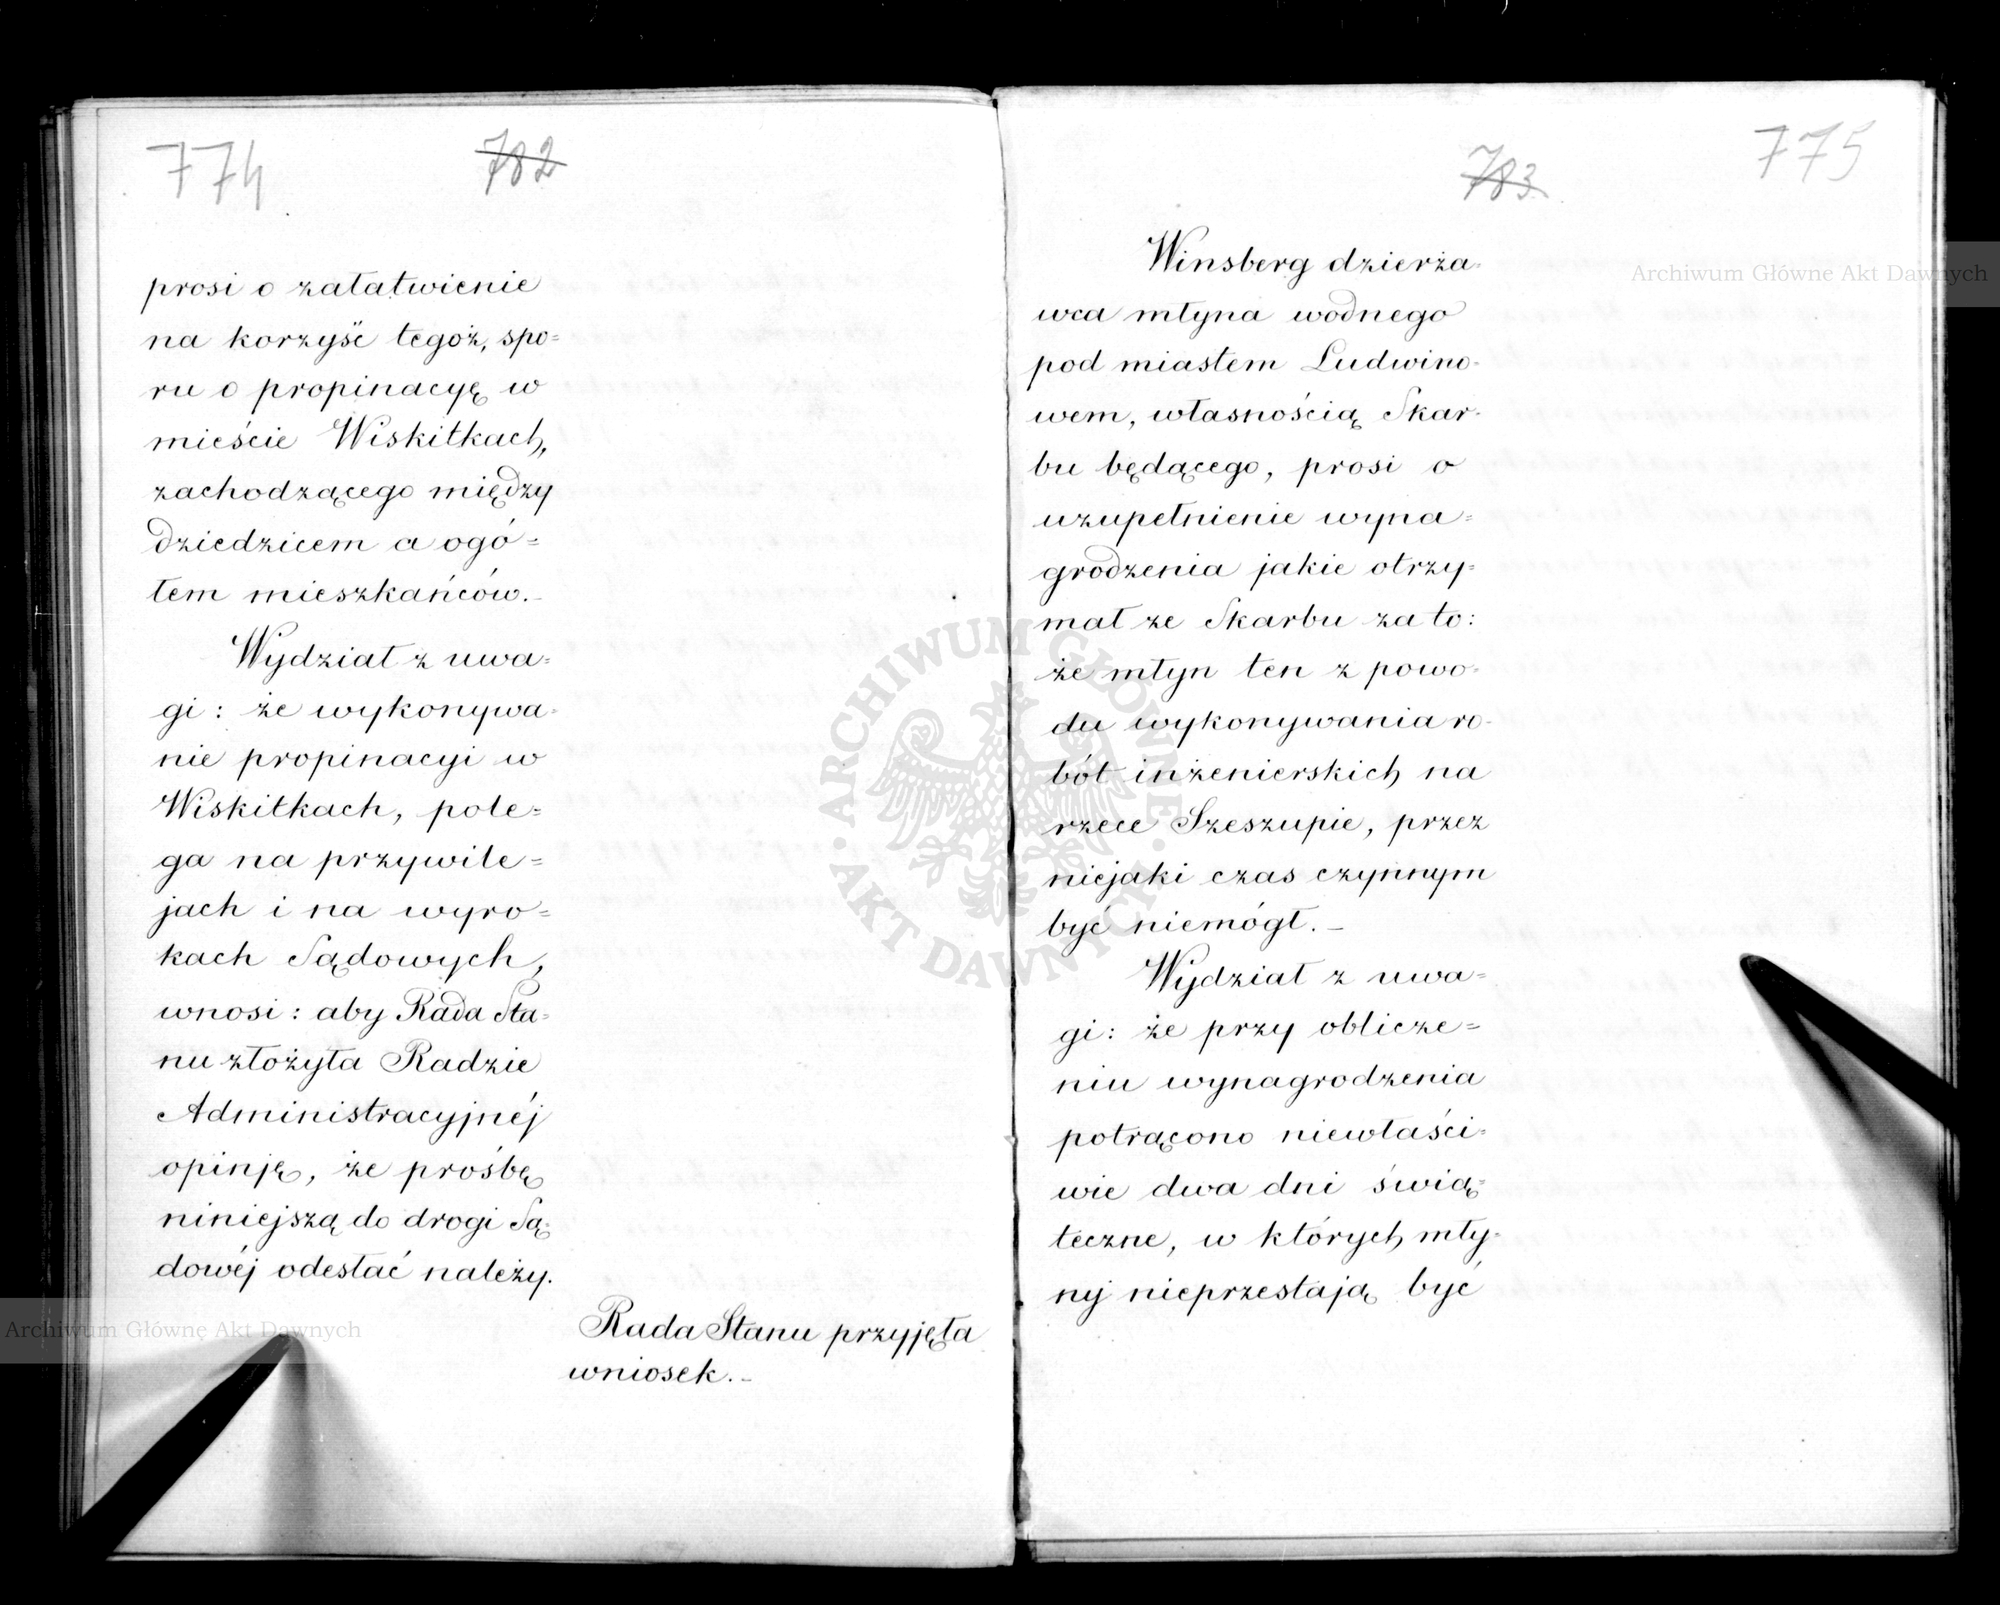 774
782
prosi o załatwienie
na korzyść tegoż, spo=
ru o propinacyę w
mieście Wiskitkach,
zachodzącego między
dziedzicem a ogó=
łem mieszkańców.
Wydział z uwa=
gi: że wykonywa=
nie propinacyi w
Wiskitkach, pole=
ga na przywile=
jach i na wyro=
kach Sądowych,
wnosi: aby Rada Sta=
nu złożyła Radzie
Administracyjnéj
opinję, że prośbę
niniejszą do drogi Są=
dowéj odesłać należy.
Rada Stanu przyjęła
wniosek.
775
783
Winsberg dzierża=
wca młyna wodnego
pod miastem Ludwino=
wem, własnością Skar=
bu będącego, prosi o
uzupełnienie wyna=
grodzenia jakie otrzy=
mał ze Skarbu za to:
że młyn ten z powo=
du wykonywania ro=
bót inżenierskich na
rzece Szeszupie, przez
niejaki czas czynnym
być niemógł.
Wydział z uwa=
gi: że przy oblicze=
niu wynagrodzenia
potrącono niewłaści=
wie dwa dni świą=
teczne, w których mły=
ny nieprzestają być
Archiwum Główne Akt Dawnych
Archiwum Główne Akt Dawnych
ARCHIWUM GŁÓWNE AKT DAWNYCH